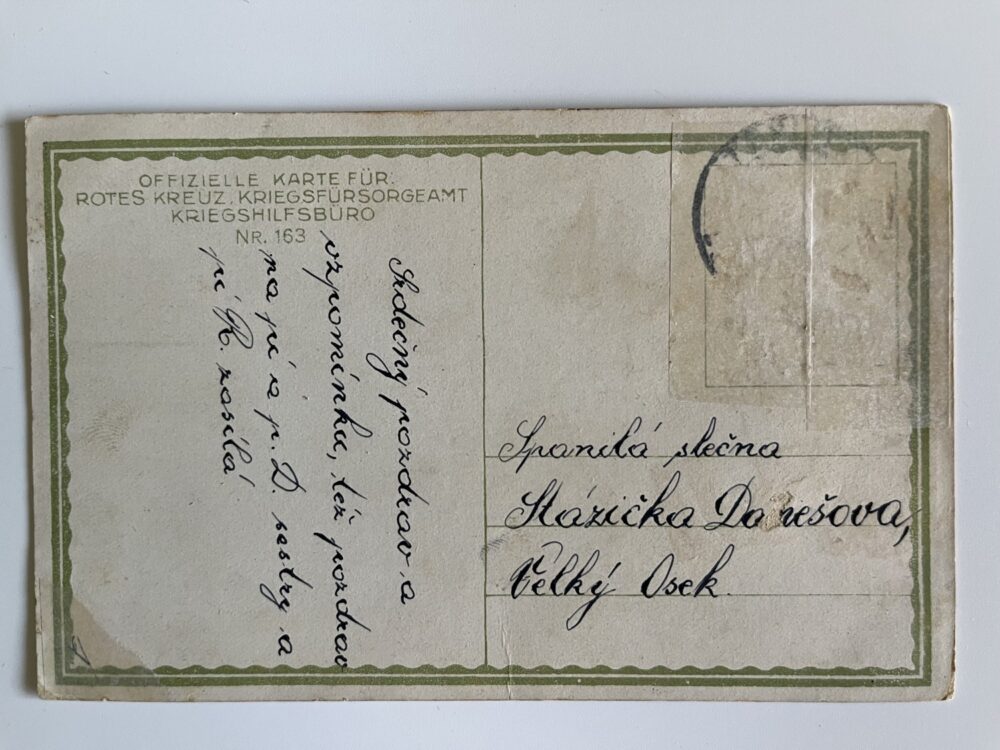 OFFIZIELLE KARTE FÜR:
ROTES KREUZ, KRIEGSFÜRSORGEAMT
KRIEGSHILFSBÜRO
NR. 163
Srdečný pozdrav a
vzpomínku, též pozdrav
na pí a p. D. sestry a
pí R. zasílá
Spanilá slečna
Stázička
Velký Osek.